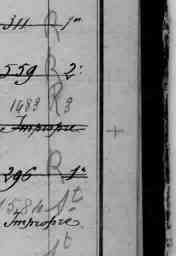 311 R 1º
559 R 2º
1483 R 3
Impropre
296 R 1º
1584 1t
Impropre
t